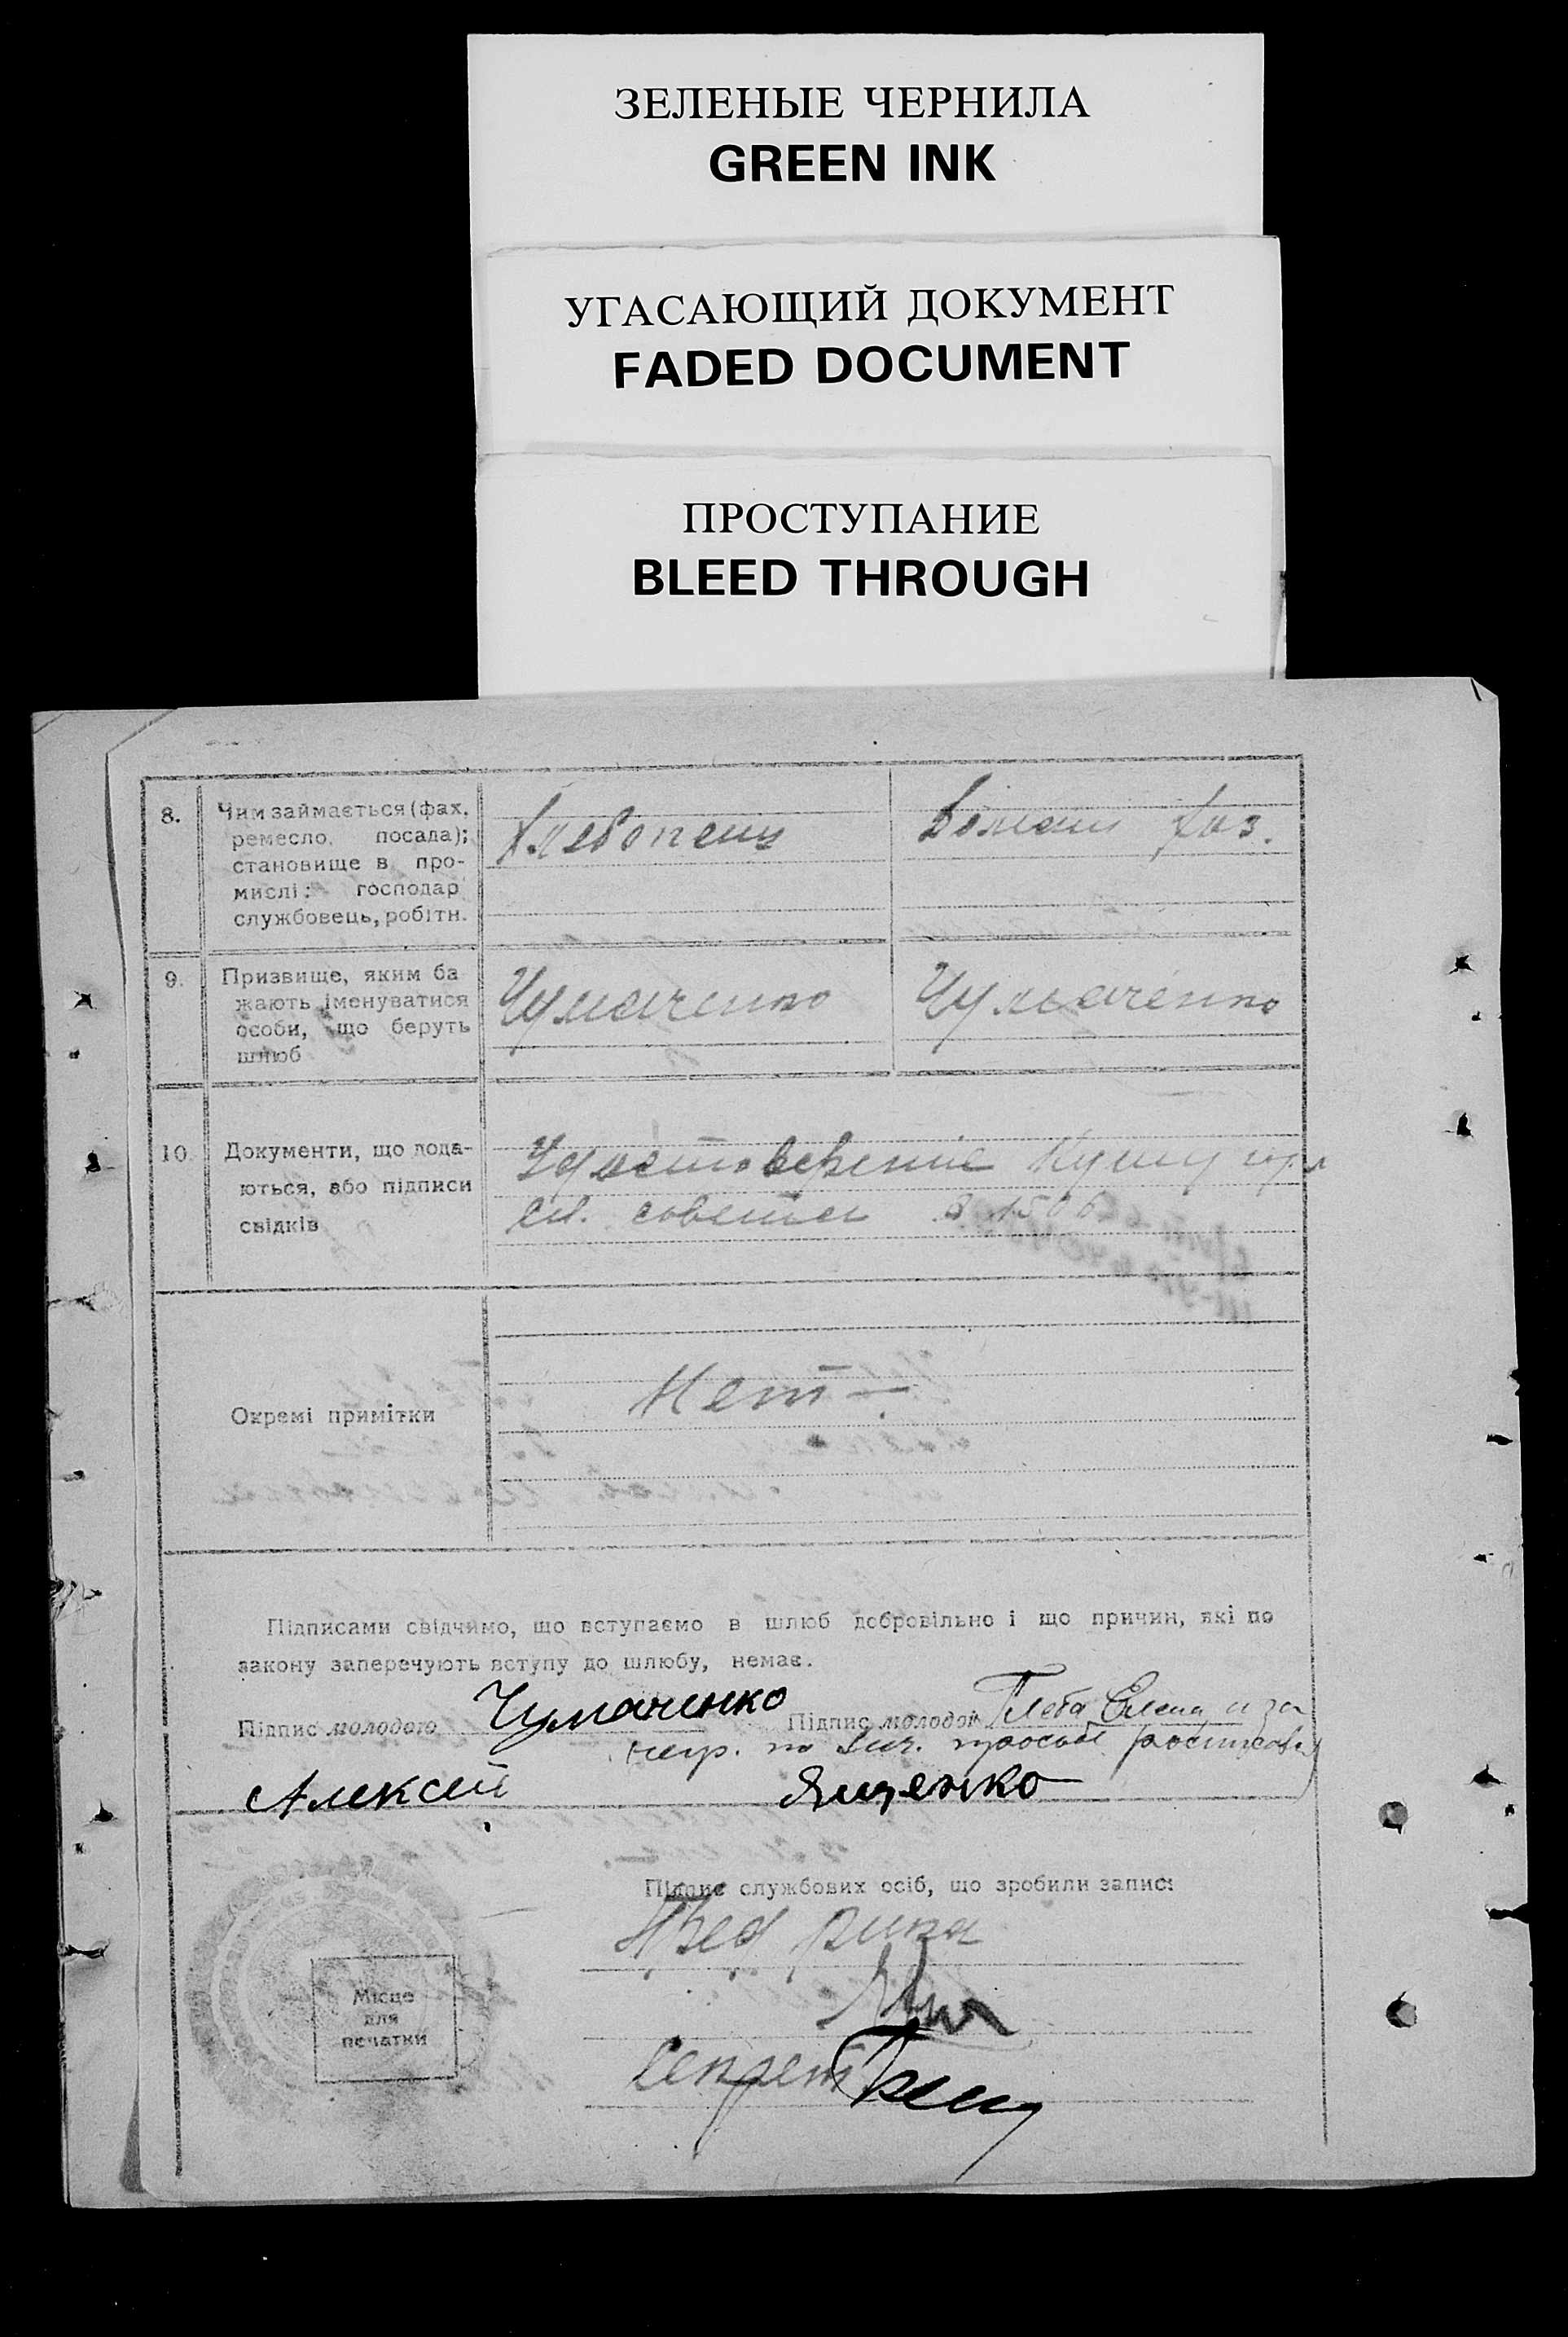 ЗЕЛЕНЫЕ ЧЕРНИЛА
GREEN INK
УГАСАЮЩИЙ ДОКУМЕНТ
FADED DOCUMENT
ПРОСТУПАНИЕ
BLEED THROUGH
8.
Чим займається (фах,
ремесло, посада);
становище в про-
мислі: господар
службовець, робітн.
Хлебопашц
Домаш хоз.
9.
Призвище, яким ба
жають іменуватися
особи, що беруть
шлюб
Чумаченко
Чумаченко
10.
Документи, що дода-
ються, або підписи
свідків
Удостоверение
сл. совета 1506
Окремі примітки
Нет —
Підписами свідчимо, що вступаємо в шлюб добровільно і що причин, які по
закону заперечують вступу до шлюбу, немає.
Підпис молодого Чумаченко Підпис молодої Глеба Елена и за
негр. по лич. просьбе
Алексей Ященко
Підпис службових осіб, що зробили запис:
Пред рика
Місце
для
печатки
Секрет